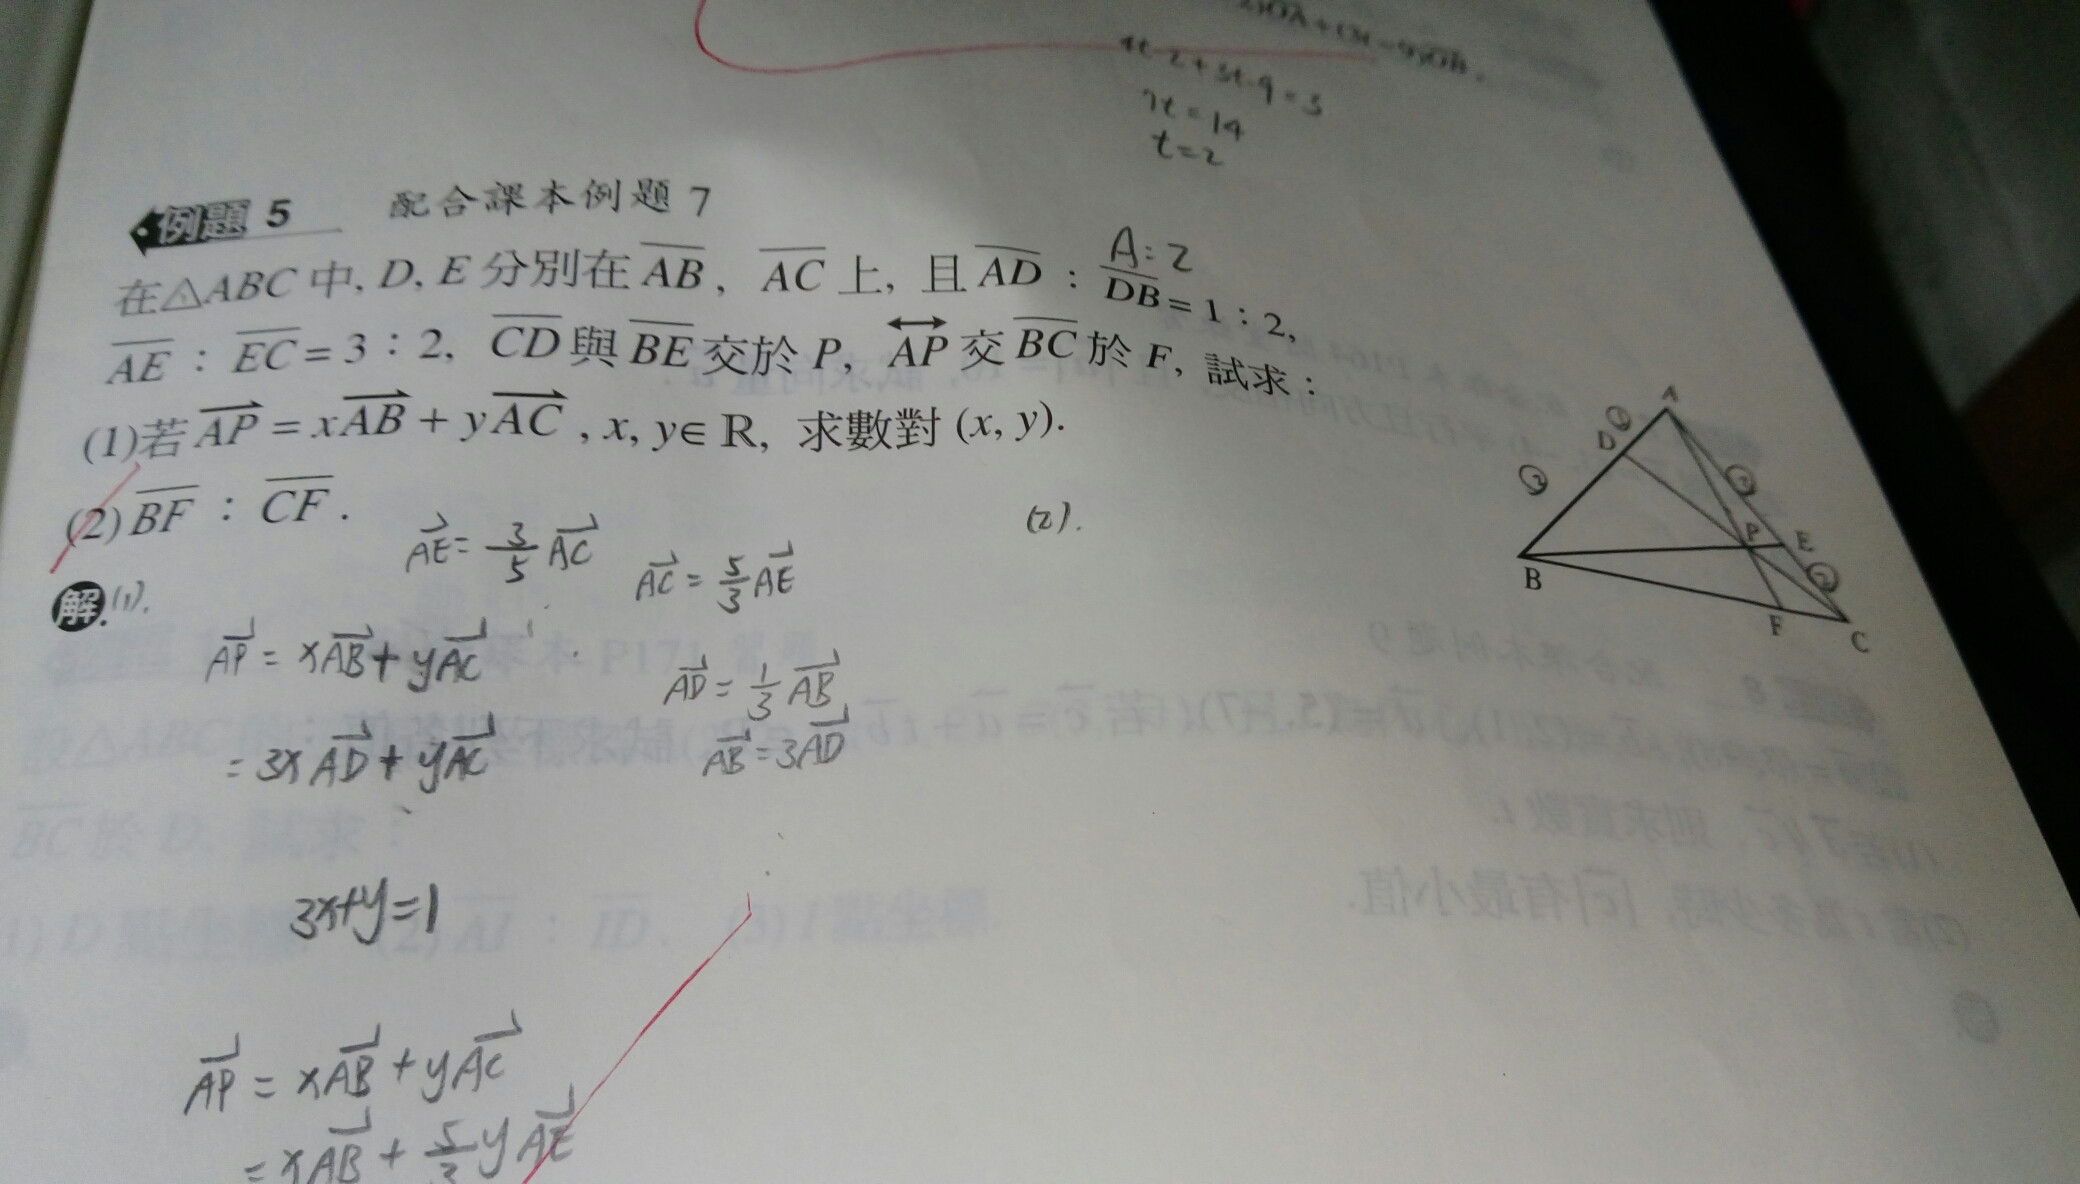 4t-2+3t-9=3
7t=14
t=2
例題 5 配合課本例題 7
A:2
在△ABC 中, D, E 分別在 AB, AC 上, 且 AD : DB = 1 : 2,
AE : EC = 3 : 2, CD 與 BE 交於 P, AP 交 BC 於 F, 試求 :
(1)若 AP = xAB + yAC , x, y∈ R, 求數對 (x, y).
(2) BF : CF .
(2).
AE = 3/5 AC
AC = 5/3 AE
解 (1).
AP = xAB + yAC
AD = 1/3 AB
= 3xAD + yAC
AB = 3AD
3x+y=1
AP = xAB + yAC
= xAB + 5/3 yAE
A
D
P
E
B
F
C